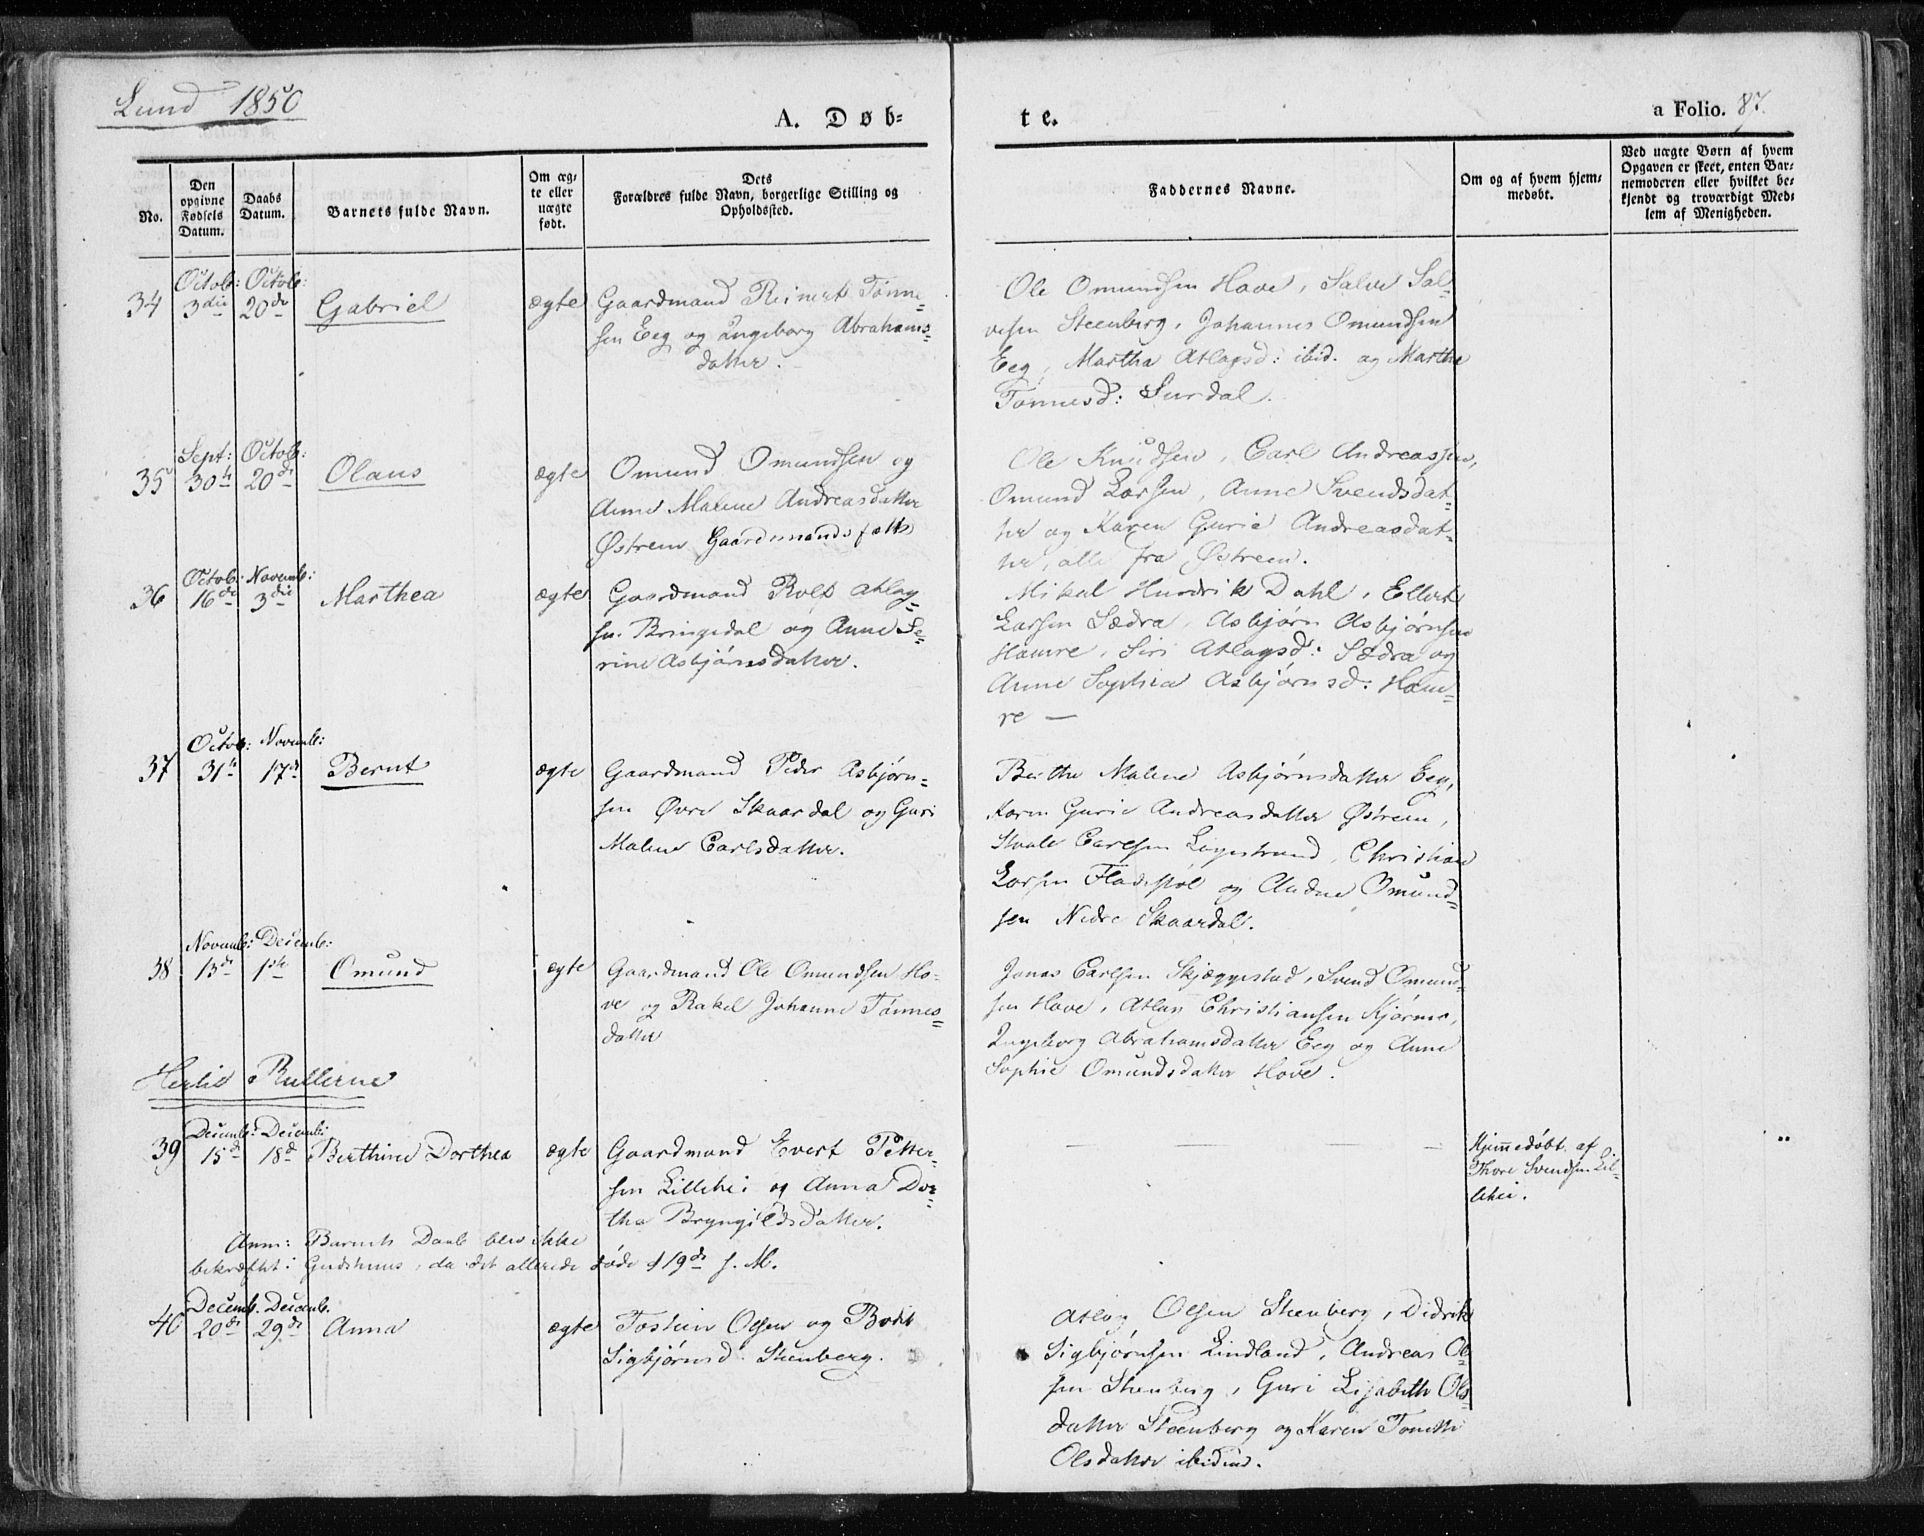 Lund 1850
A. Døb-
te.
a Folio. 87.
No.
Den
opgivne
Fødsels
Datum.
Daabs
Datum.
Barnets fulde Navn.
Om æg-
te eller
uægte
født.
Dets
Forældres fulde Navn, borgerlige Stilling og
Opholdssted.
Faddernes Navne.
Om og af hvem hjem-
medøbt.
Ved uægte Børn af hvem
Opgaven er skeet, enten Bar-
nemoderen eller hvilket be-
kjendt og troværdigt Med-
lem af Menigheden.
34
Octob:
3die
Octob:
20de
Gabriel
ægte
Gaardmand Reinert Tønne-
sen Eeg og Ingeborg Abrahams-
datter.
Ole Omundsen Hove, Salve Sal-
vesen Steenberg, Johannes Omundsen
Eeg, Martha Atlagsd: ibid. og Martha
Tønnesd: Surdal.
35
Sept:
30te
Octob:
20de
Olaus
ægte
Omund Omundsen og
Anne Malene Andreasdatter
Østrem Gaardmandsfolk
Ole Knudsen, Carl Andreassen,
Omund Larsen, Anne Svendsdat-
ter og Karen Gurie Andreasdat-
ter, alle fra Østrem.
36
Octob:
16de
Novemb:
3die
Marthea
ægte
Gaardmand Rolf Atlag-
sn. Bringedal og Anne Se-
rine Asbjørnsdatter.
Mikal Hendrik Dahl, Ellert
Larsen Sædra, Asbjørn Asbjørnsen
Hamre, Siri Atlagsd: Sædra og
Anne Sophia Asbjørnsd: Ham-
re —
37
Octob:
31te
Novemb:
17de
Bernt
ægte
Gaardmand Peder Asbjørn-
sen Øvre Skaardal og Guri
Malene Carlsdatter.
Berthe Malene Asbjørnsdatter Eeg,
Karen Gurie Andreasdatter Østrem,
Staale Carlsen Lagestrand, Christian
Larsen Fladstøl og Andne Omund-
sen Nedre Skaardal.
38
Novemb:
13de
Decemb:
1ste
Omund
ægte
Gaardmand Ole Omundsen Ho-
ve og Rakel Johanne Tønnes-
datter
Jonas Carlsen Skjæggestad, Svend Omund-
sen Hove, Atlag Christiansen Kjørmo,
Ingeborg Abrahamsdatter Eeg og Anne
Sophie Omundsdatter Hove.
Hertil Rullerne
39
Decemb:
15de
Decemb:
18de
Berthine Dorthea
ægte
Gaardmand Evert Petter-
sen Lillehei og Anna Dor-
thea Bryngildsdatter.
Hjemmedøbt af
Thore Svendsen Lil-
lehei.
Anm: Barnets Daab blev ikke
bekræftet i Gudshuus, da det allerede døde d 19de s. M.
40
Decemb.
20de
Decemb.
29de
Anna
ægte
Tosten Olsen og Bodil
Sigbjørnsd: Steenberg.
Atlag Olsen Steenberg, Didrik
Sigbjørnsen Lindland, Andreas Ol-
sen Steenberg, Guri Lisabeth Ols-
datter Steenberg og Karen Tonette
Olsdatter ibidem.